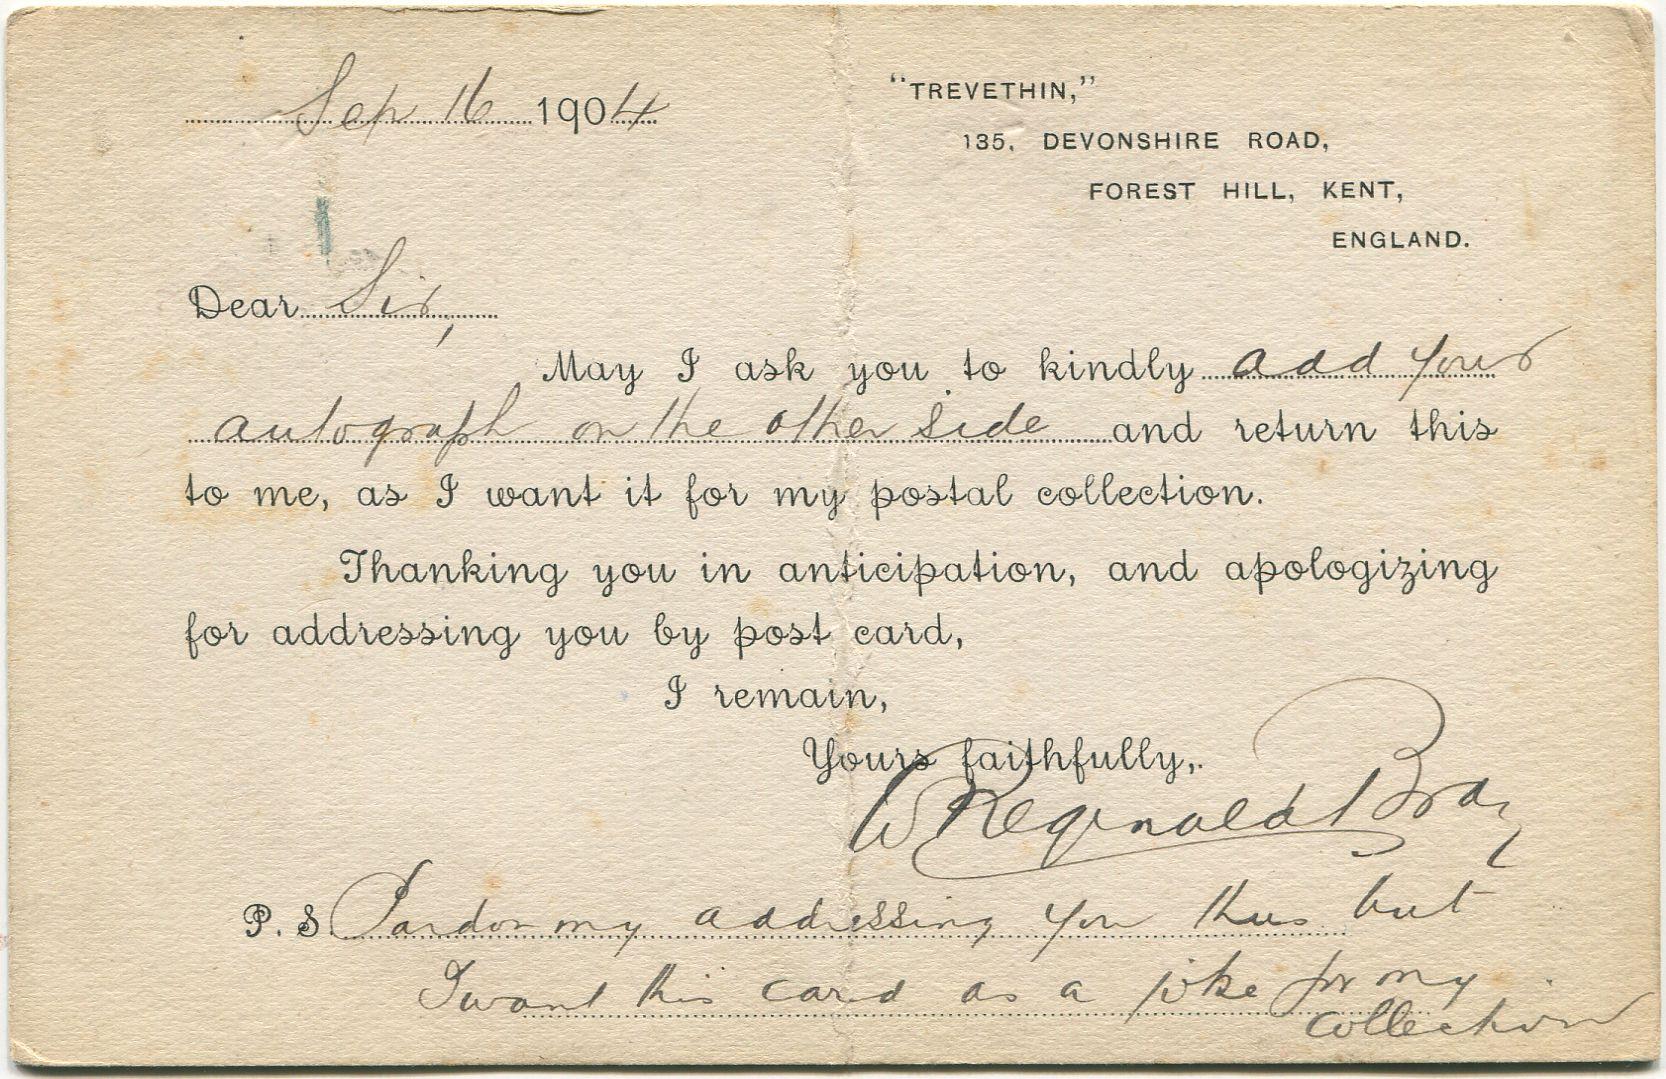 Sep 16 1904
"TREVETHIN,"
135, DEVONSHIRE ROAD,
FOREST HILL, KENT,
ENGLAND.
Dear Sir,
May I ask you to kindly add your
autograph on the other side and return this
to me, as I want it for my postal collection.
Thanking you in anticipation, and apologizing
for addressing you by post card,
I remain,
Yours faithfully,
W Reginald Bray
P. S. Pardon my addressing you thus but
I want this card as a joke for my
collection